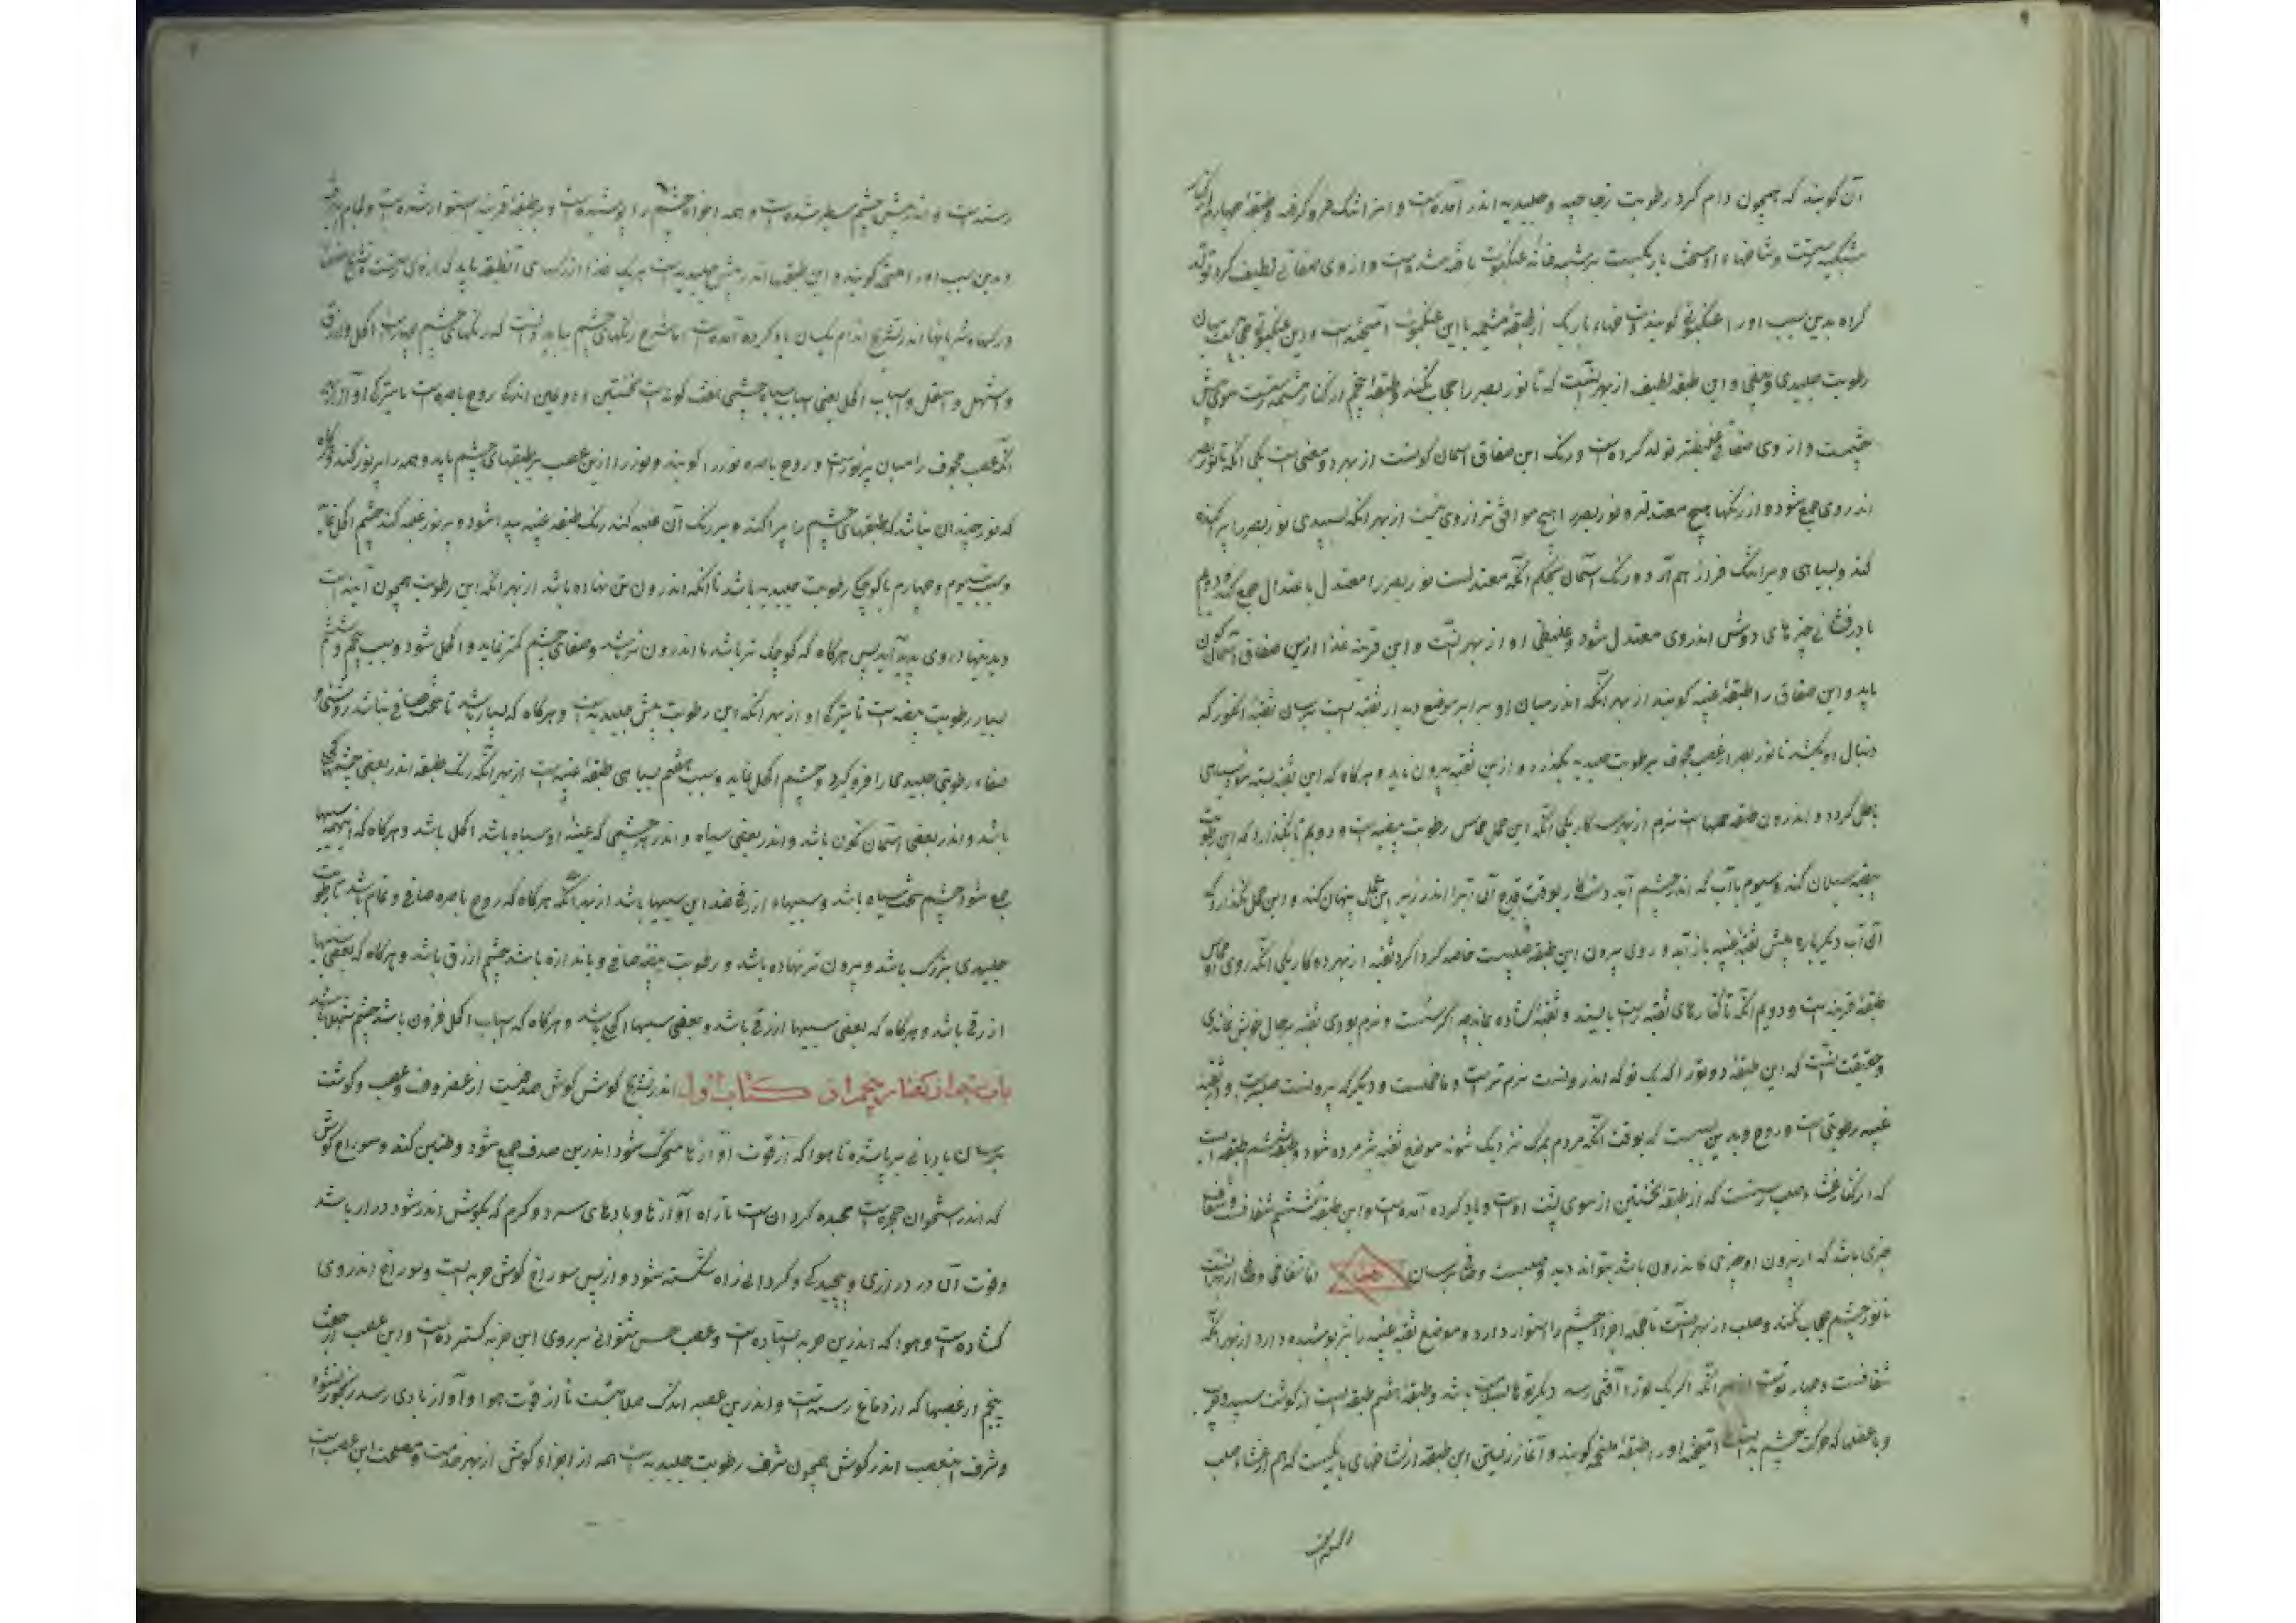 آن گویند که همچون دام گرد رطوبت زجاجیه و جلیدیه اندر آمده است و طبقهٔ چهارم
شبکیه رستست و شاخهاء او سخت باریکست بر شبه خانهٔ عنکبوت بافته شده است و از وی صفاقی لطیف کرد تولد
کرده بدین سبب او را عنکبوتی گویند و شاخهاء باریک از طبقهٔ مشیمه با این عنکبوت آمیخته است و این عنکبوتی میان
رطوبت جلیدی و بیضی و این طبقه لطیف از بهر آنست که تا نور بصر را حجاب نکند و طبقهٔ پنجم از کنار مشیمه رستست سوی پیش
چشمست و از وی صفاقی غلیظتر تولد کرده است و رنگ این صفاق آسمان گونست از بهر دو معنی است یکی آنکه تا نور بصر
اندر وی جمع شود و از رنگها هیچ معتدلتر و نور بصر را هیچ موافق تر از وی نیست از بهر آنکه سپیدی نور بصر را پراکنده
کند و سیاهی و فراز هم آرد و رنگ آسمان گون معتدلست نور بصر را معتدل باعتدال جمع کند و دوم
تا درفشانی چیزهای روشن اندر وی معتدل شود و غلیظی او از بهر آنست و این قرنیه غذا ازین صفاق آسمان گون
یابد و این صفاق را طبقهٔ عنبیه گویند از بهر آنکه اندر میان او برابر موضع دیدار ثقبه ایست بر سان ثقبهٔ انگور که
دنبال او بکشند تا نور بصر از عصب مجوف بر رطوبت جلیدیه بگذرد و ازین ثقبه بیرون تابد و هرگاه که این ثقبه بسته شود بینایی
باطل گردد و اندرون طبقه خملهاست نرم از بهر سه کار یکی آنکه این خمل مماس رطوبت بیضیه است و دویم تا نگذارد که این رطوبت
بیضیه سیلان کند و سیوم تا آب که اندر چشم آید دستکار بوقت قدح آن آب را اندر زیر این خمل پنهان کند و این خمل نگذارد که
آن آب دیگرباره پیش ثقبهٔ عنبیه باز آید و روی بیرون این طبقه صلبست خاصه گرداگرد ثقبه از بهر دو کار یکی آنکه روی مماس او
طبقهٔ قرنیه است و دویم آنکه تا کنارهای ثقبه راست بایستد و ثقبه گشاده بماند چه اگر سست و نرم بودی ثقبه بر حال خویش نماندی
و حقیقت آنست که این طبقه دو تو را که یک تو که اندرونست نرم تر است و با خملست و دیگر که بیرونست صلبست و اندر ثقبهٔ
عنبیه رطوبتی است و روح و بدین سببست که بوقت آنکه مردم بمرگ نزدیک شوند موضع ثقبه پژمرده شود و طبقهٔ ششم طبقه ایست
که از کنار غشاء صلب رستست که از طبقهٔ نخستین از سوی پشت اوست و یاد کرده آمده است و این طبقهٔ ششم شفافست و شفاف
چیزی باشد که از بیرون او چیزی که اندرون باشد بتواند دید و صلبست بر سان اما شفافی از بهر آنست
تا نور چشم حجاب نکند و صلب از بهر آنست تا جمله اجزاء چشم را استوار دارد و موضع ثقبهٔ عنبیه را نیز پوشیده دارد از بهر آنکه
شفافست و چهار توست از بهر آنکه اگر یک تو را آفتی رسد دیگر توها بسلامت باشد و طبقهٔ هفتم طبقه ایست از گوشت سپید و چرب
و با عضلها که حرکت چشم بدانست آمیخته او را طبقهٔ ملتحمه گویند و آغاز رستن این طبقه از شاخهای باریکست که هم از غشاء صلب
رسته است و اندر پیش چشم سطبر شده است و همه اجزاء چشم را پوشیده است و بر طبقهٔ قرنیه استوار شده است و تمام
و بدین سبب او را ملتحمه گویند و این طبقها اندر پیش جلیدیه است هر یک غذا از رگهای آن طبقه یابد که از وی رستست و تشریح عضلها
و رگها و شریانها اندر تشریح اندام یکسان یاد کرده آمده است اما شرح رنگهای چشم بباید دانست که رنگهای چشم چهار است اکحل و ازرق
و اشهل و اشعل و اسباب اکحل یعنی اسباب سیاه چشمی هفت گونه است نخستین و دومین اندکی روح باصره است یا تیرگی او از بهر
آنکه عصب مجوف را میان پر نور است و روح باصره نور را گویند و نور را ازین عصب بر طبقهای چشم یابد و همه را پر نور کند و هرگاه
که نور چندان نباشد که طبقهای چشم را پراکند و بر رنگ آن غلبه کند رنگ طبقهٔ عنبیه پیدا شود و بر نور غلبه کند چشم اکحل نماید
و سبب سیوم و چهارم یا کوچکی رطوبت جلیدیه باشد تا آنکه اندرون تر نهاده باشد از بهر آنکه این رطوبت همچون آینه است
و دیدنیها در وی پدید آید پس هرگاه که کوچک تر باشد یا اندرون تر باشد صفای چشم کمتر نماید و اکحل شود و سبب پنجم و ششم
بسیار رطوبت بیضیه است تا تیرگی او از بهر آنکه این رطوبت پیش جلیدیه است و هرگاه که بسیار باشد تا سخت صافی نباشد روشنی و
صفاء رطوبت جلیدی را فرو گیرد و چشم اکحل نماید و سبب هفتم سیاهی طبقهٔ عنبیه است از بهر آنکه رنگ طبقه اندر بعضی چشمها
باشد و اندر بعضی آسمان گون باشد و اندر بعضی سیاه و اندر هر چشمی که عنبیهٔ او سیاه باشد اکحل باشد و هرگاه که این همه سببها
جمع شود چشم سخت سیاه باشد و سببهاء ازرقی ضد این سببها باشد از بهر آنکه هرگاه که روح باصره صافی و تمام باشد تا رطوبت
جلیدی بزرگ باشد و بیرون تر نهاده باشد و رطوبت بیضیه صافی و باندازه باشد چشم ازرق باشد و هرگاه که بعضی سببها
ازرقی باشد و هرگاه که بعضی سببها ازرقی باشد و بعضی سببها اکحلی باشد و هرگاه که اسباب اکحل فزون باشد چشم شهلا باشد
باب پنجم از گفتار پنجم از کتاب اول اندر تشریح گوش گوش صدفیست از غضروف و عصب و گوشت
بر سان بادبانی بر پا شده تا هوا که از قوت آوازها متحرک شود اندرین صدف جمع شود و طنین کند و سوراخ گوش
که اندر استخوان حجریست پیچیده گردانست تا راه آوازها و بادهای سرد و گرم که بگوش اندر شود دراز باشد
و قوت آن در درازی و پیچیدگی و گردانی راه شکسته شود و از پس سوراخ گوش جوبه ایست و سوراخ اندر وی
گشاده است و هوا که اندرین جوبه ایستاده است و عصب حس شنوائی بر روی این جوبه گسترده است و این عصب از جفت
پنجم از عصبها که از دماغ رسته است و اندرین عصبه اندک صلابتست تا از قوت هوا و آواز بادی رسد رنجور نشود
و شرف این عصب اندر گوش همچون شرف رطوبت جلیدیه است همه از اجزاء گوش از بهر خدمت و مصلحت این عصب است